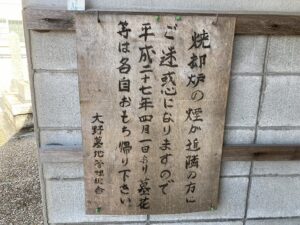 焼却炉の煙が近隣の方に
ご迷惑になりますので
平成二十七年四月一日より墓花
等は各自おもち帰り下さい
大野墓地管理組合